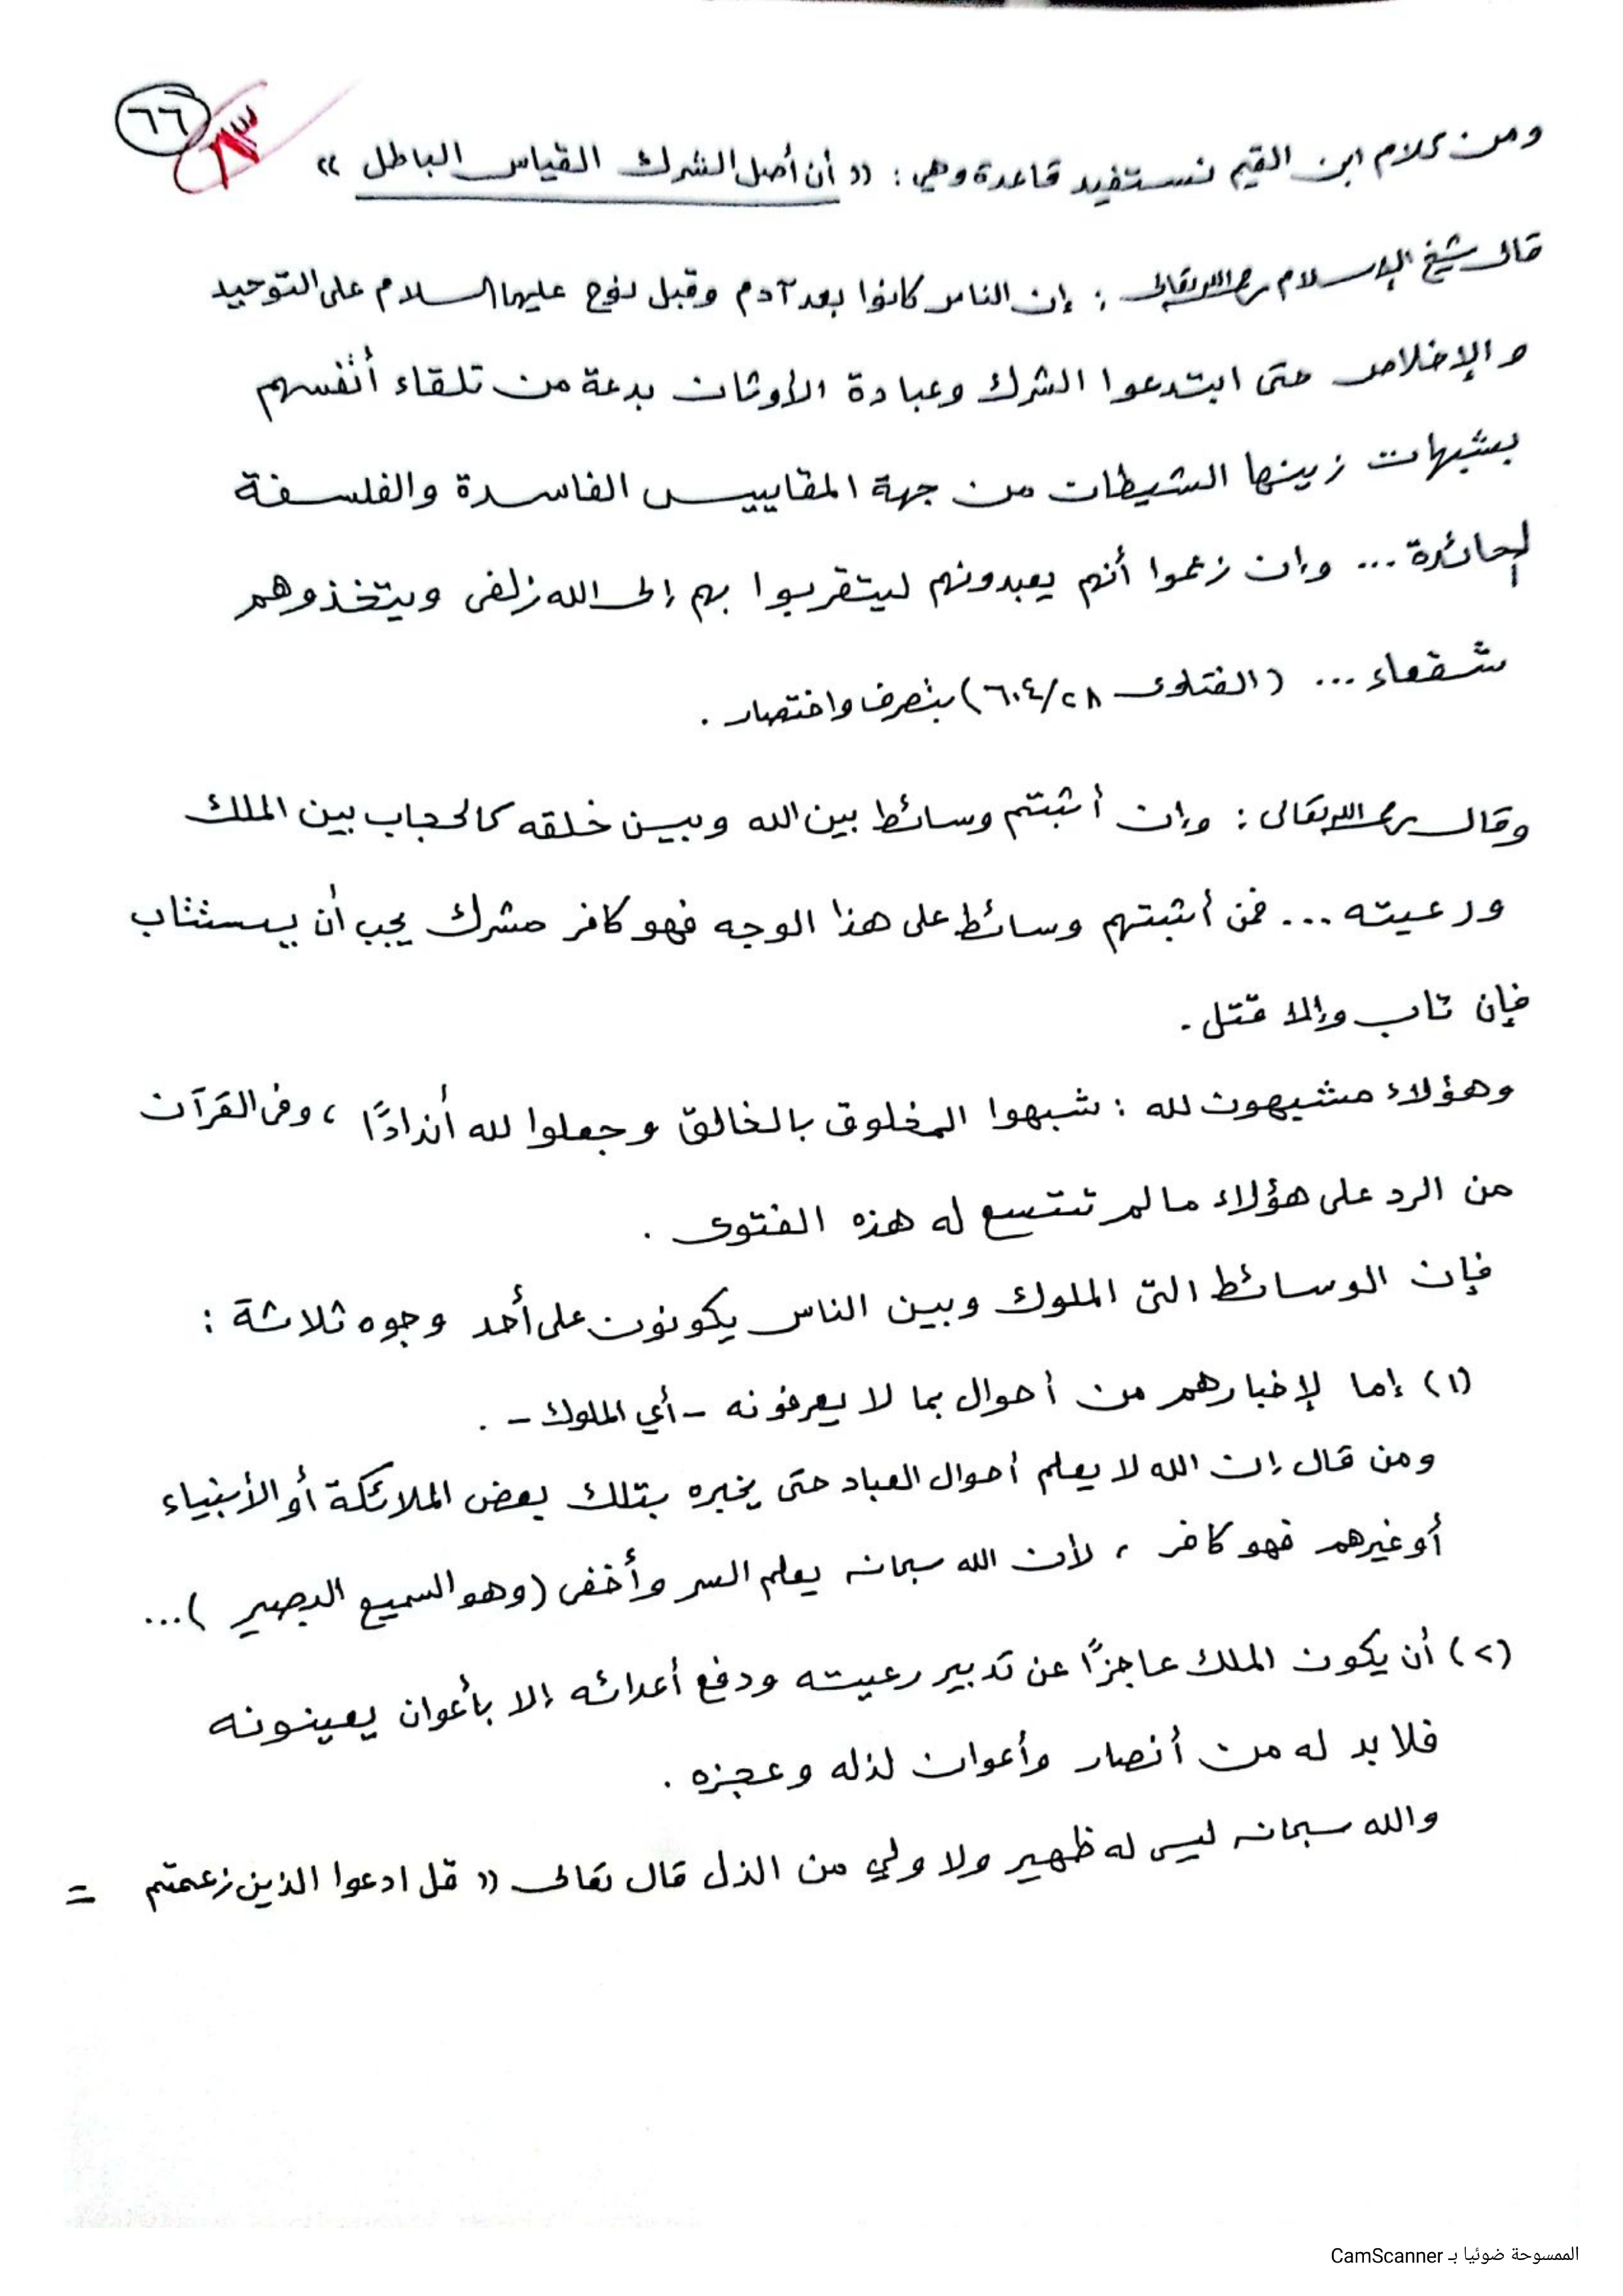 ٦٦
ومن كلام ابن القيم نستفيد قاعدة وهي : (( أن أصل الشرك القياس الباطل ))
قال شيخ الإسلام رحمه الله تعالى : إن الناس كانوا بعد آدم وقبل نوح عليهما السلام على التوحيد
والإخلاص حتى ابتدعوا الشرك وعبادة الأوثان بدعة من تلقاء أنفسهم
بشبهات زينها الشيطان من جهة المقاييس الفاسدة والفلسفة
الحائدة ... وإن زعموا أنهم يعبدونهم ليتقربوا بهم إلى الله زلفى ويتخذوهم
شفعاء ... ( الفتاوى ٢٨/ ٦٠٤) بتصرف واختصار .
وقال رحمه الله تعالى : وإن أثبتم وسائط بين الله وبين خلقه كالحجاب بين الملك
ورعيته ... فمن أثبتهم وسائط على هذا الوجه فهو كافر مشرك يجب أن يستتاب
فإن تاب وإلا قتل .
وهؤلاء مشبهون لله : شبهوا المخلوق بالخالق وجعلوا لله أندادًا ، وفى القرآن
من الرد على هؤلاء ما لم تتسع له هذه الفتوى .
فإن الوسائط التى الملوك وبين الناس يكونون على أحد وجوه ثلاثة :
(١) إما لإخبارهم من أحوال بما لا يعرفونه - أي الملوك - .
ومن قال إن الله لا يعلم أحوال العباد حتى يخبره بتلك بعض الملائكة أو الأنبياء
أو غيرهم فهو كافر ، لأن الله سبحانه يعلم السر وأخفى (وهو السميع البصير ) ...
(٢) أن يكون الملك عاجزًا عن تدبير رعيته ودفع أعدائه إلا بأعوان يعينونه
فلا بد له من أنصار وأعوان لذله وعجزه .
والله سبحانه ليس له ظهير ولا ولي من الذل قال تعالى (( قل ادعوا الذين زعمتم =
الممسوحة ضوئيا بـ CamScanner